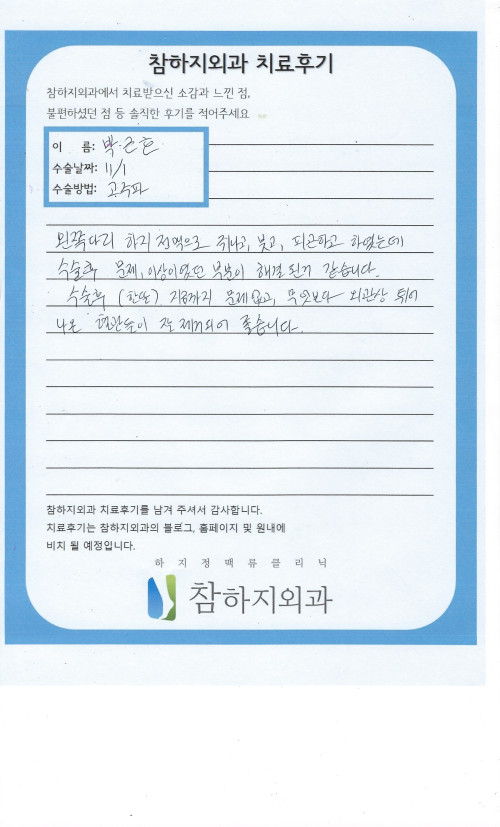 참하지외과 치료후기
참하지외과에서 치료받으신 소감과 느낀 점,
불편하셨던 점 등 솔직한 후기를 적어주세요
이 름: 박근호
수술날짜: 11/1
수술방법: 고주파
왼쪽다리 하지 정맥으로 쥐나고, 붓고, 피곤하고 하였는데
수술후 문제, 이상이 있던 부분이 해결 된거 같습니다.
수술후 (한달) 지금까지 문제 없고, 무엇보다 외관상 튀어
나온 혈관들이 잘 제거되어 좋습니다.
참하지외과 치료후기를 남겨 주셔서 감사합니다.
치료후기는 참하지외과의 블로그, 홈페이지 및 원내에
비치 될 예정입니다.
하지정맥류클리닉
참하지외과